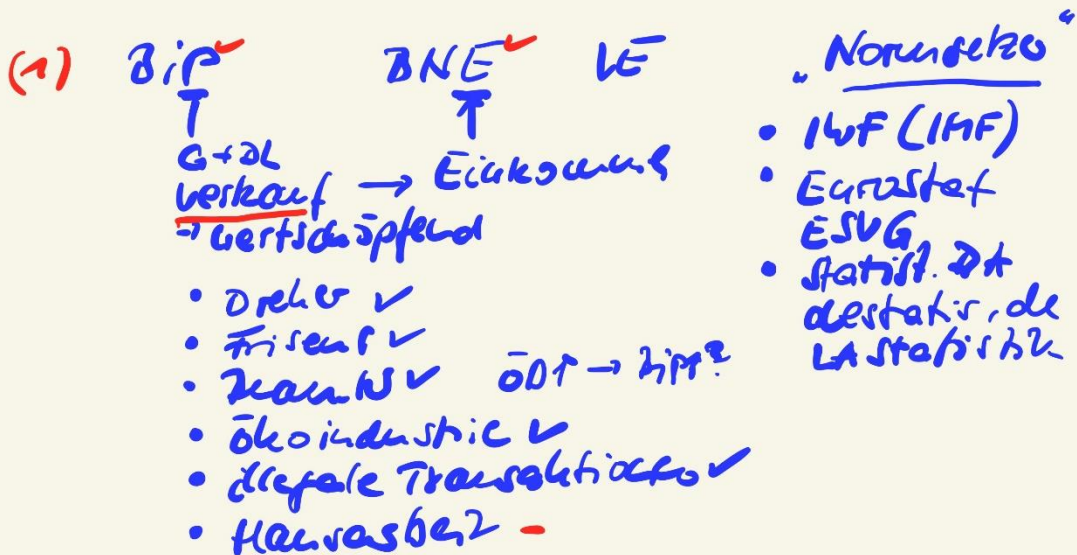 (1) BiP BNE VE
G+DL
verkauf → Einkommen
→ wertschöpfend
• Dreher
• Friseur
• ökoindustrie
• illegale Transaktionen
• Hausarbeit
ÖD↑ → BIP↑?
„Normsetzer"
• IWF (IMF)
• Eurostat
ESVG
• statist. BA
destatis.de
LA Statistik